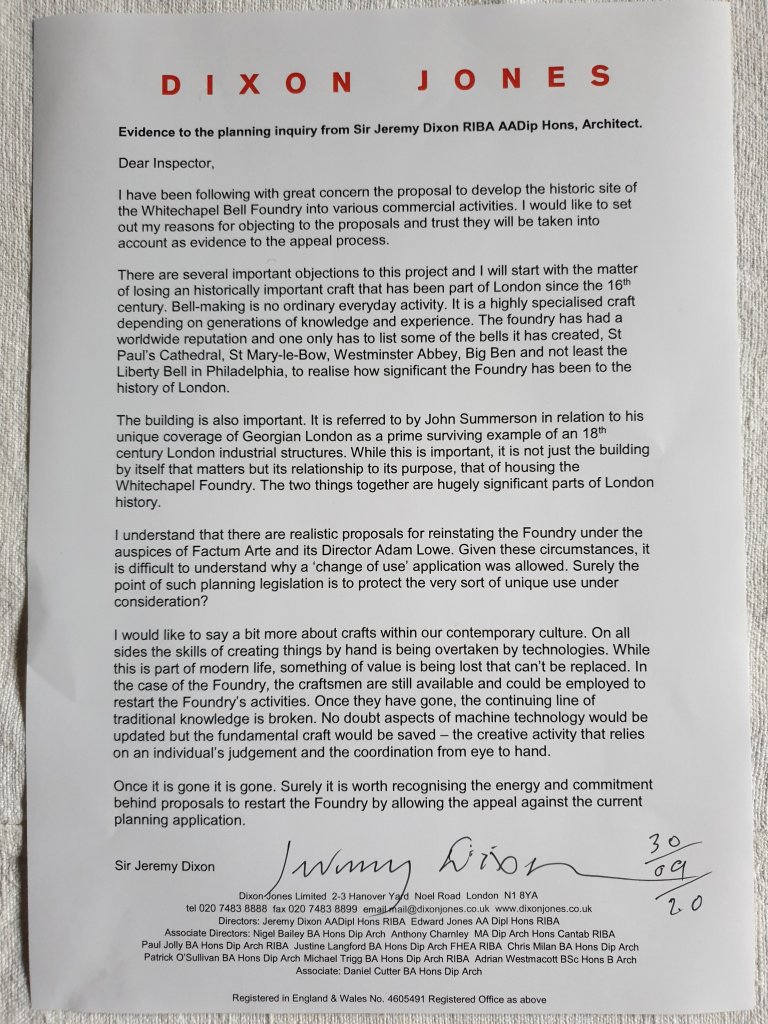 DIXON JONES
Evidence to the planning inquiry from Sir Jeremy Dixon RIBA AADip Hons, Architect.
Dear Inspector,
I have been following with great concern the proposal to develop the historic site of
the Whitechapel Bell Foundry into various commercial activities. I would like to set
out my reasons for objecting to the proposals and trust they will be taken into
account as evidence to the appeal process.
There are several important objections to this project and I will start with the matter
of losing an historically important craft that has been part of London since the 16th
century. Bell-making is no ordinary everyday activity. It is a highly specialised craft
depending on generations of knowledge and experience. The foundry has had a
worldwide reputation and one only has to list some of the bells it has created, St
Paul's Cathedral, St Mary-le-Bow, Westminster Abbey, Big Ben and not least the
Liberty Bell in Philadelphia, to realise how significant the Foundry has been to the
history of London.
The building is also important. It is referred to by John Summerson in relation to his
unique coverage of Georgian London as a prime surviving example of an 18th
century London industrial structures. While this is important, it is not just the building
by itself that matters but its relationship to its purpose, that of housing the
Whitechapel Foundry. The two things together are hugely significant parts of London
history.
I understand that there are realistic proposals for reinstating the Foundry under the
auspices of Factum Arte and its Director Adam Lowe. Given these circumstances, it
is difficult to understand why a 'change of use' application was allowed. Surely the
point of such planning legislation is to protect the very sort of unique use under
consideration?
I would like to say a bit more about crafts within our contemporary culture. On all
sides the skills of creating things by hand is being overtaken by technologies. While
this is part of modern life, something of value is being lost that can't be replaced. In
the case of the Foundry, the craftsmen are still available and could be employed to
restart the Foundry's activities. Once they have gone, the continuing line of
traditional knowledge is broken. No doubt aspects of machine technology would be
updated but the fundamental craft would be saved – the creative activity that relies
on an individual's judgement and the coordination from eye to hand.
Once it is gone it is gone. Surely it is worth recognising the energy and commitment
behind proposals to restart the Foundry by allowing the appeal against the current
planning application.
Sir Jeremy Dixon Jeremy Dixon 30/09/20
Dixon Jones Limited 2-3 Hanover Yard Noel Road London N1 8YA
tel 020 7483 8888 fax 020 7483 8899 email mail@dixonjones.co.uk www.dixonjones.co.uk
Directors: Jeremy Dixon AADipl Hons RIBA Edward Jones AA Dipl Hons RIBA
Associate Directors: Nigel Bailey BA Hons Dip Arch Anthony Charnley MA Dip Arch Hons Cantab RIBA
Paul Jolly BA Hons Dip Arch RIBA Justine Langford BA Hons Dip Arch FHEA RIBA Chris Milan BA Hons Dip Arch
Patrick O'Sullivan BA Hons Dip Arch Michael Trigg BA Hons Dip Arch RIBA Adrian Westmacott BSc Hons B Arch
Associate: Daniel Cutter BA Hons Dip Arch
Registered in England & Wales No. 4605491 Registered Office as above